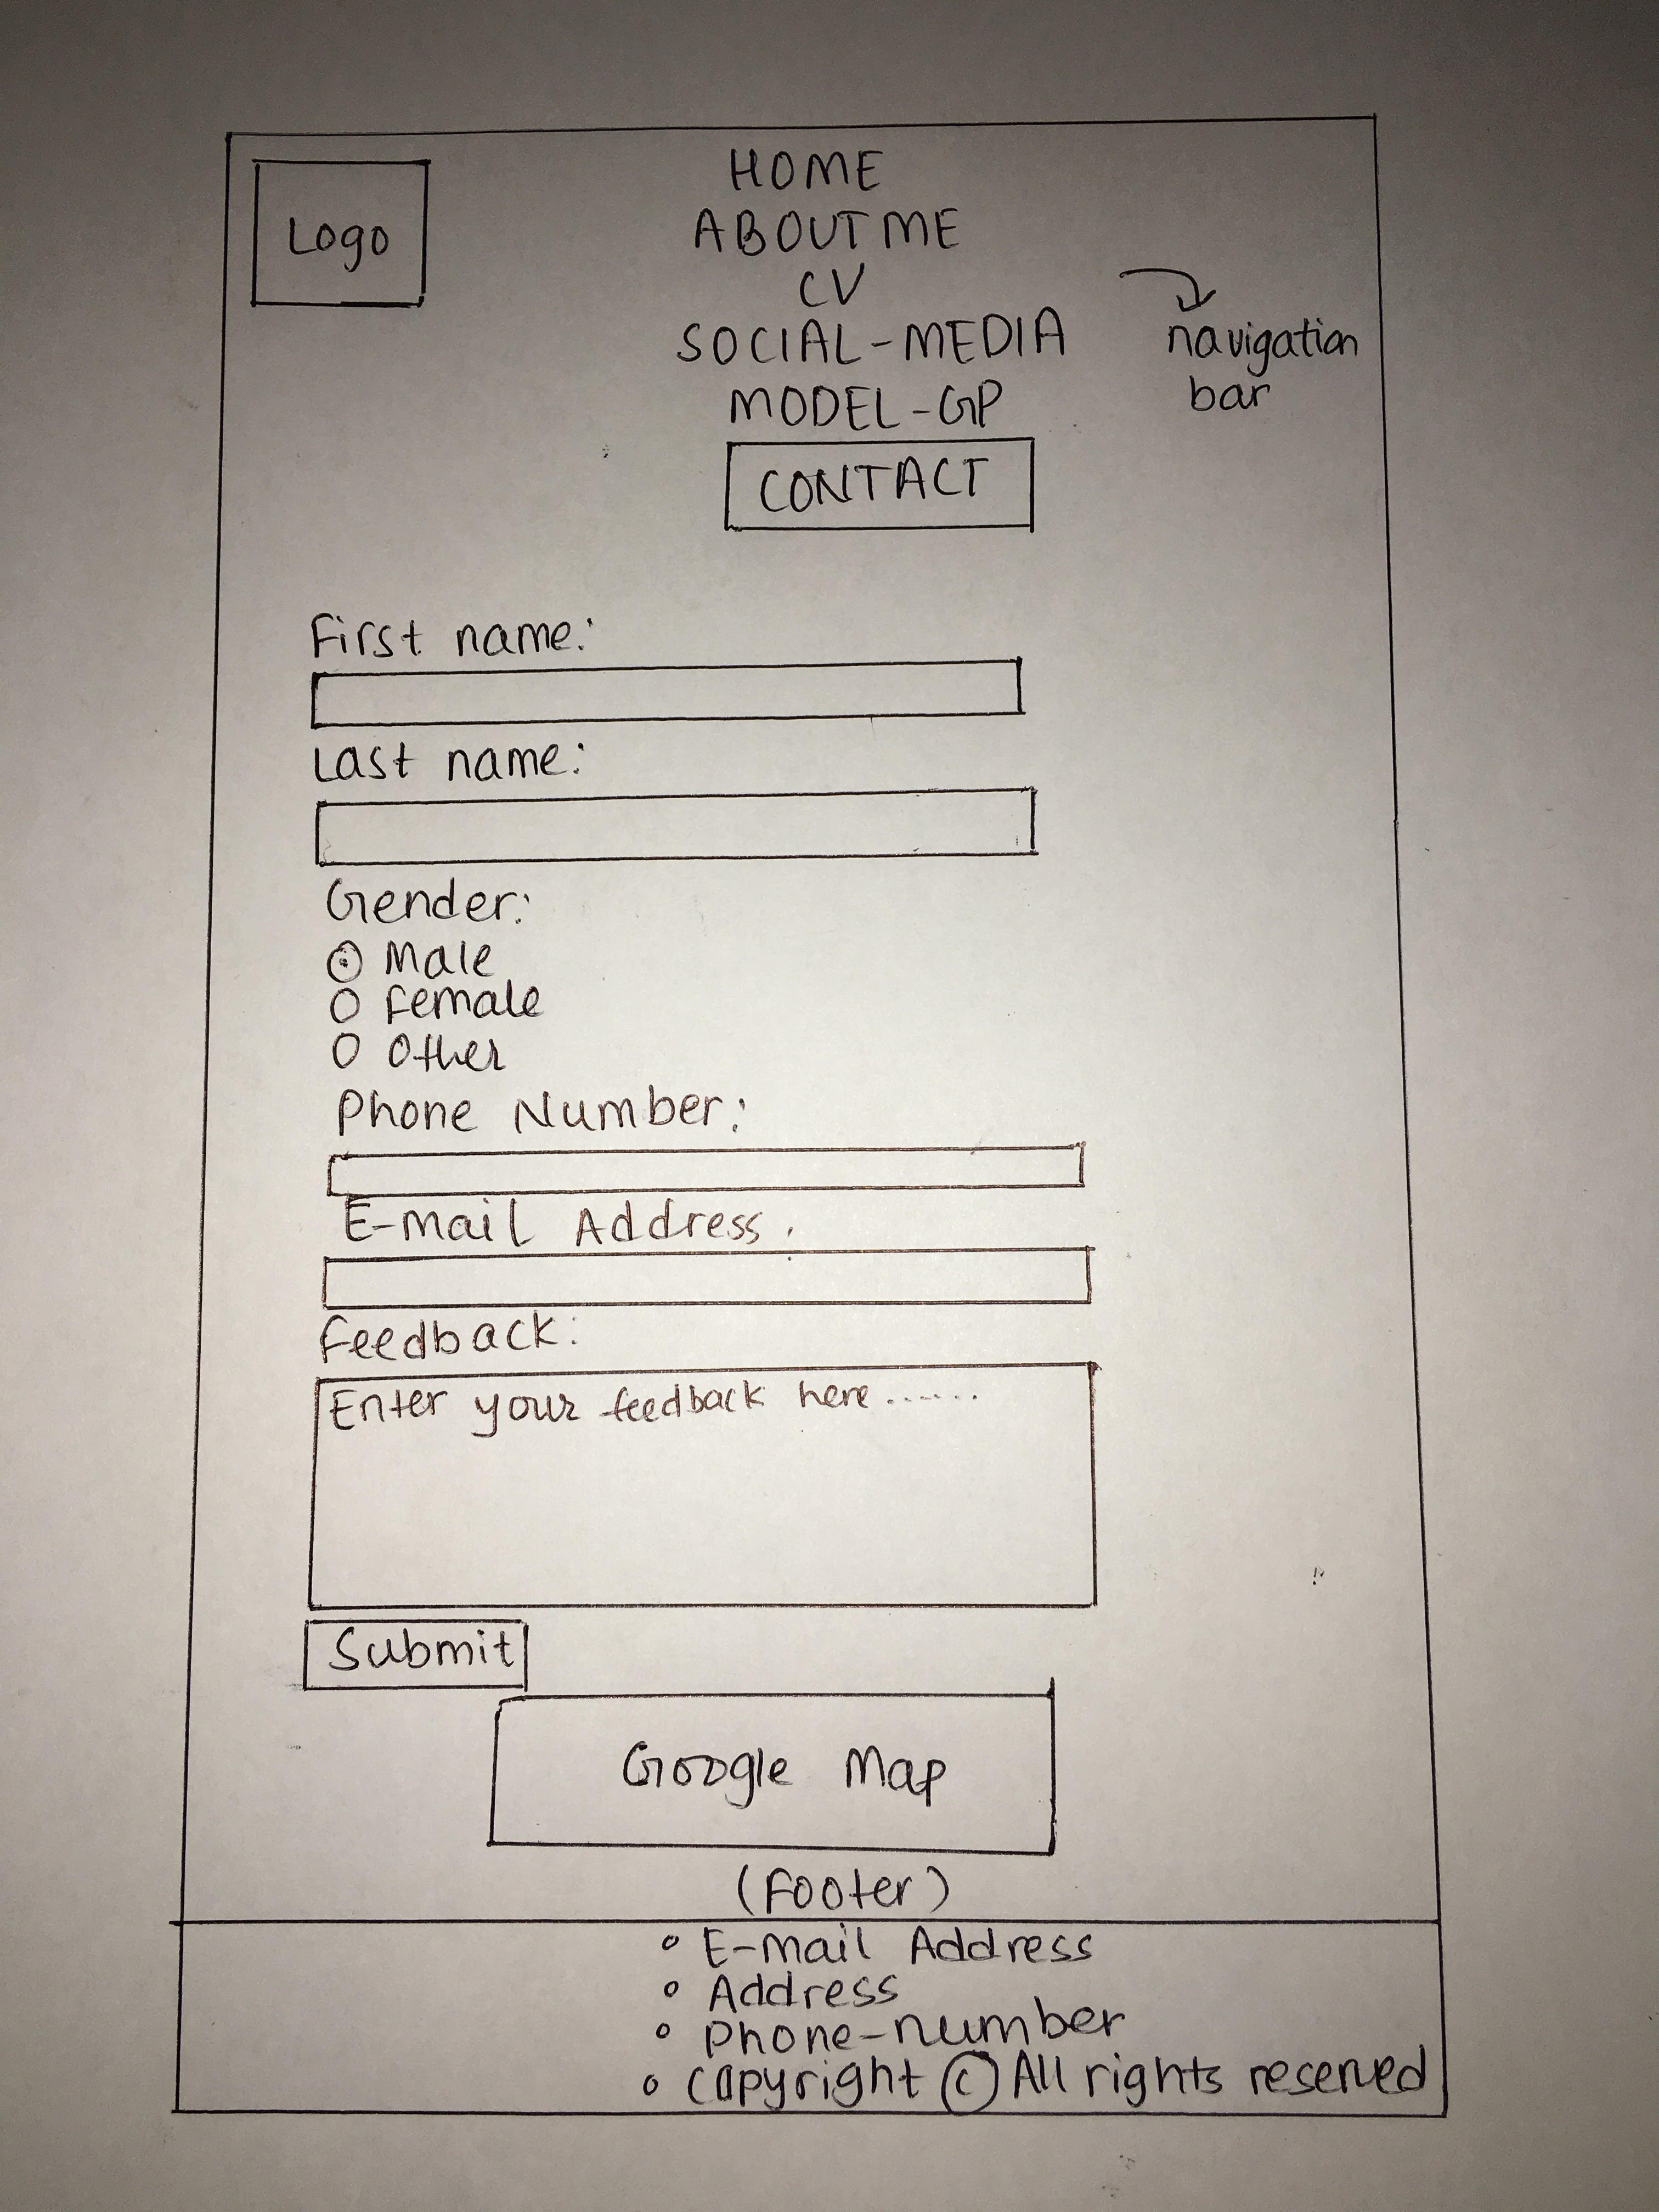 Logo
HOME
ABOUT ME
CV
SOCIAL-MEDIA
MODEL-GP
CONTACT
navigation
bar
First name:
Last name:
Gender:
Male
Female
Other
Phone Number:
E-mail Address:
Feedback:
Enter your feedback here......
Submit
Google Map
(Footer)
E-mail Address
Address
Phone-number
Copyright © All rights reserved